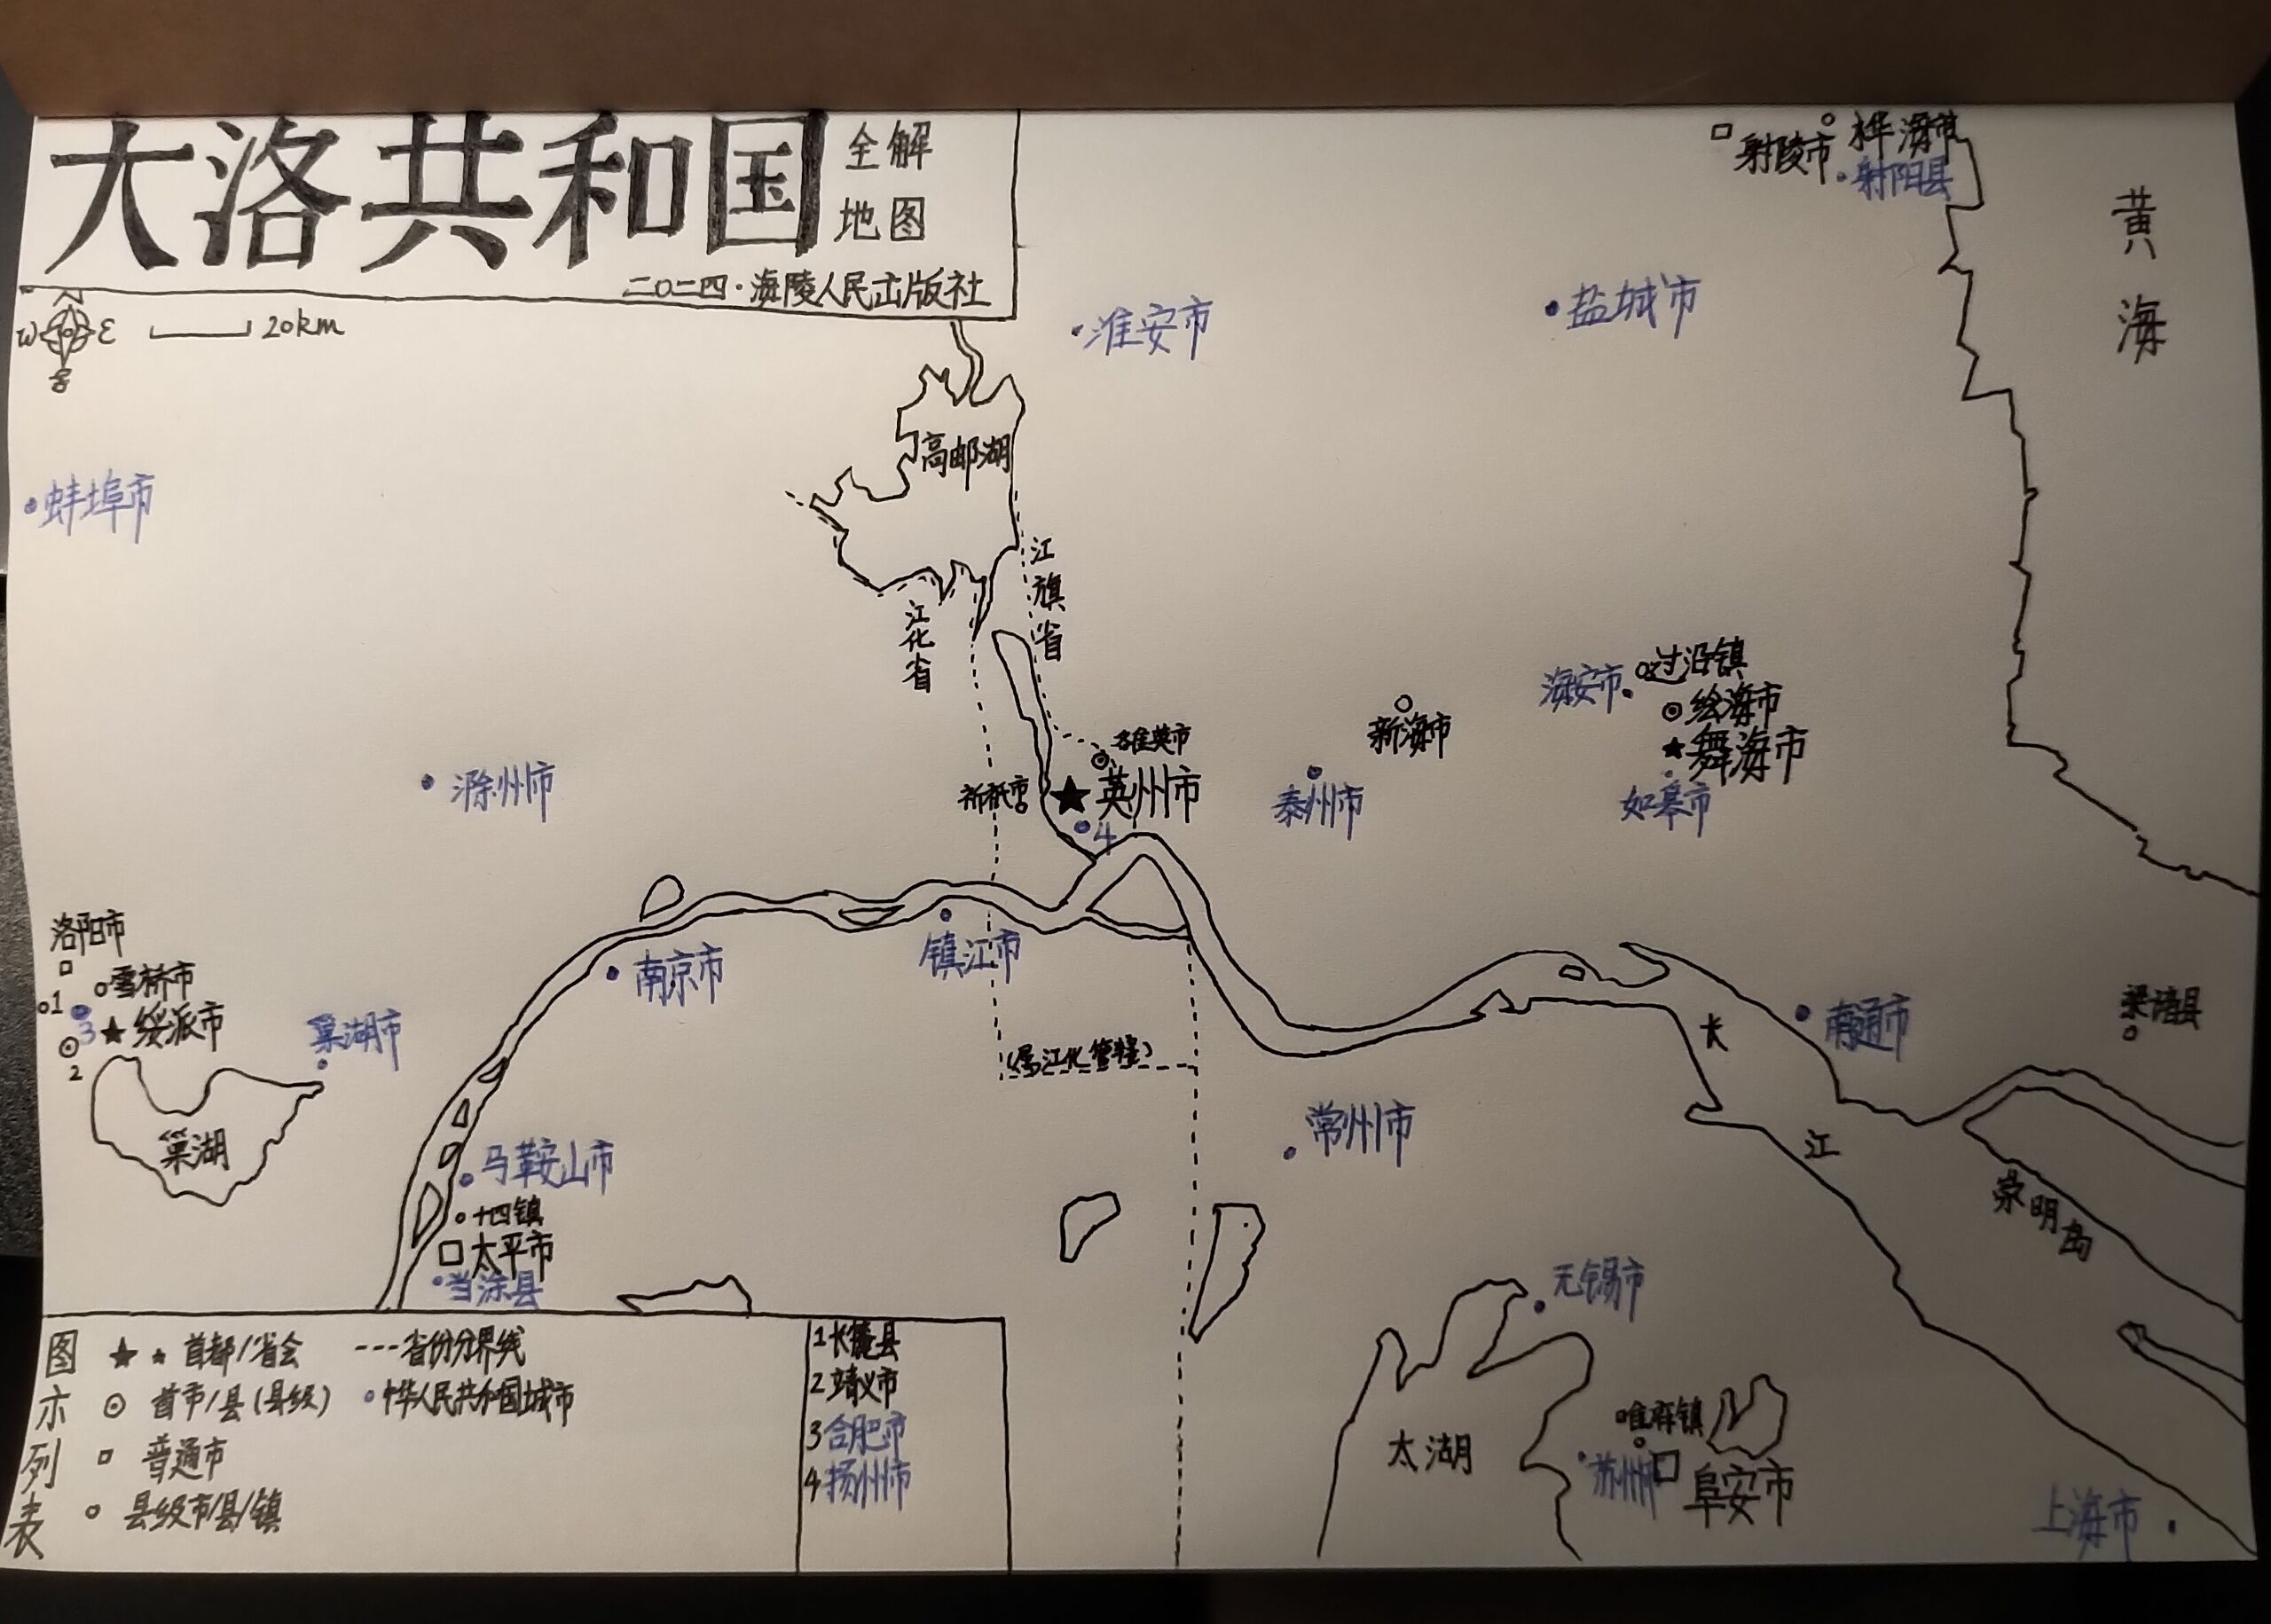 大洛共和国
全解
地图
二〇二四·海陵人民出版社
W E
S
20km
射陵市
桦海市
射阳县
黄海
淮安市
盐城市
高邮湖
蚌埠市
江旗省
江化省
过沿镇
海安市
绘海市
新海市
舞海市
雄英市
滁州市
祈祇市
英州市
4
泰州市
如皋市
洛阳市
雪桥市
1
3
绥派市
2
巢湖市
南京市
镇江市
南通市
梁谙县
长江
(属江化管辖)
巢湖
马鞍山市
常州市
十四镇
太平市
当涂县
崇明岛
无锡市
太湖
苏州市
阜安市
上海市
图示列表
首都/省会
---省份分界线
首市/县(县级)
中华人民共和国城市
普通市
县级市/县/镇
2靖义市
3合肥市
4扬州市